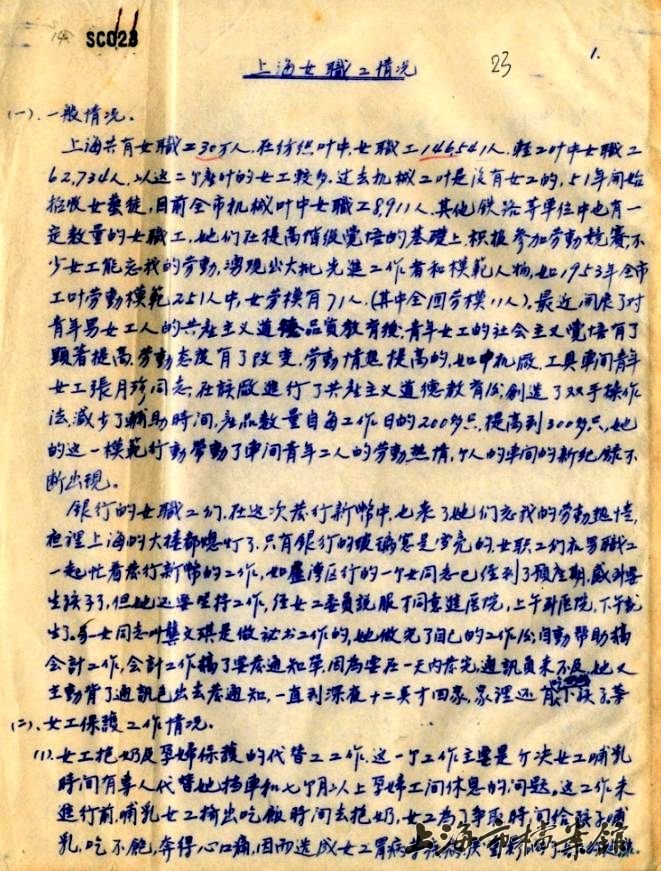 14 SC023
上海女職工情况 23 1.
(一)、一般情况。
上海共有女職工30万人,在纺织叶中,女職工146,541人,輕工叶中女職工
62,734人,以这二个產叶的女工較多,过去机械工叶是没有女工的,51年间始
招收女艺徒,目前全市机械叶中女職工8,911人,其他鉄路等单位中也有一
定数量的女職工,她们在提高階级覺悟的基礎上,积极参加劳動競賽,不
少女工能忘我的劳動,湧現出大批先進工作者和模範人物,如1953年全市
工叶劳動模範251人中,女劳模有71人,(其中全国劳模11人)。最近间展了对
青年男女工人的共產主义道德品質教育後,青年女工的社会主义覺悟有了
顕著提高,劳動态度有了改变,劳動情热提高的,如中机廠,工具車间青年
女工張月珍同志,在該廠進行了共產主义道德教育后,創造了双手操作
法,减少了輔助时间,產品数量自每工作日的200多只,提高到300多只,她
的这一模範行動帶動了車间青年工人的劳動热情,个人的車间的新纪録不
断出現。
銀行的女職工们,在这次發行新幣中,也来了她们忘我的劳動热情,
夜裡上海的大樓都熄灯了,只有銀行的玻璃窓是雪亮的,女职工们和男職工
一起忙着發行新幣的工作,如盧湾区行的一个女同志已經到了預產期,感到要
生孩子了,但她还要坚持工作,经女工委員説服才同意進医院,上午到医院,下午就
生了。另一女同志叶龔文琪是做祕书工作的,她做完了自己的工作后,自動幇助搞
会計工作,会計工作搞了要發通知单,因為要在一天内發完,通訊員来不及,她又
主動背了通訊包出去發通知,一直到深夜十二点才回家,家裡还有孩子等
(二)、女工保護工作情况。
(1)、女工抱奶及孕婦保護的代替工工作,这一个工作主要是解决女工哺乳
时间有專人代替她档車和七个月以上孕婦工间休息的问题。这工作未
進行前,哺乳女工擠出吃飯时间去抱奶,女工為了争取时间给孩子哺
乳,吃不飽,奔得心口痛,因而造成女工胃病
上海市档案館